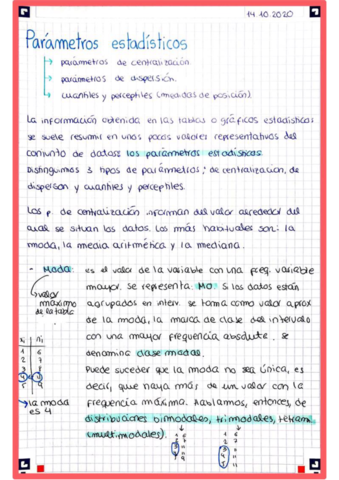 14.10.2020
Parámetros estadísticos
↳ parámetros de centralización
↳ parámetros de dispersión.
↳ cuantiles y perceptiles (medidas de posición)
La información obtenida en las tablas o gráficos estadísticos
se suele resumir en unos pocos valores representativos del
conjunto de datos: los parámetros estadísticos.
Distinguimos 3 tipos de parámetros: de centralización, de
dispersión y cuantiles y perceptiles.
Los p. de centralización informan del valor alrededor del
cual se sitúan los datos. Los más habituales son: la
moda, la media aritmética y la mediana.
- Moda: es el valor de la variable con una freq. variable
↳ valor máximo de la tabla
mayor. se representa: MO. Si los datos están
agrupados en interv. se toma como valor aprox
de la moda, la marca de clase del intervalo
con una mayor frequencia absoluta. se
denomina clase modal.
xi ni
1 6
2 7
3
4
→ la moda es 4
Puede suceder que la moda no sea única, es
decir, que haya más de un valor con la
frequencia máxima. Hablamos, entonces, de
distribuciones bimodales, trimodales, tetram.
(multimodales).